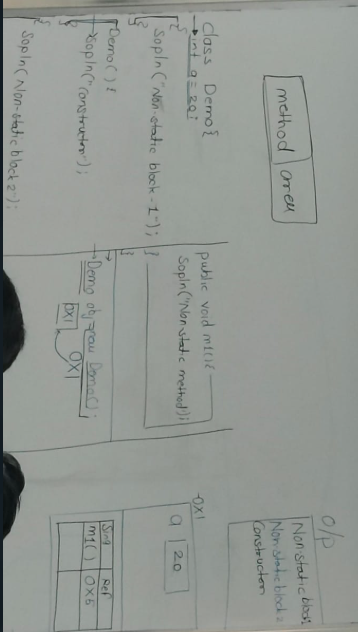 method area
class Demo{
int a = 20;
{
Sopln("Non static block-1");
}
Demo() {
Sopln("Constructor");
}
{
Sopln("Non-static block 2");
public void m1() {
Sopln("Non static method");
}
}
Demo obj=new Demo();
0X1
0X1
O/P
Non static block
Non static block 2
Constructor
0X1
a 20
Sing Ref
m1() 0X5